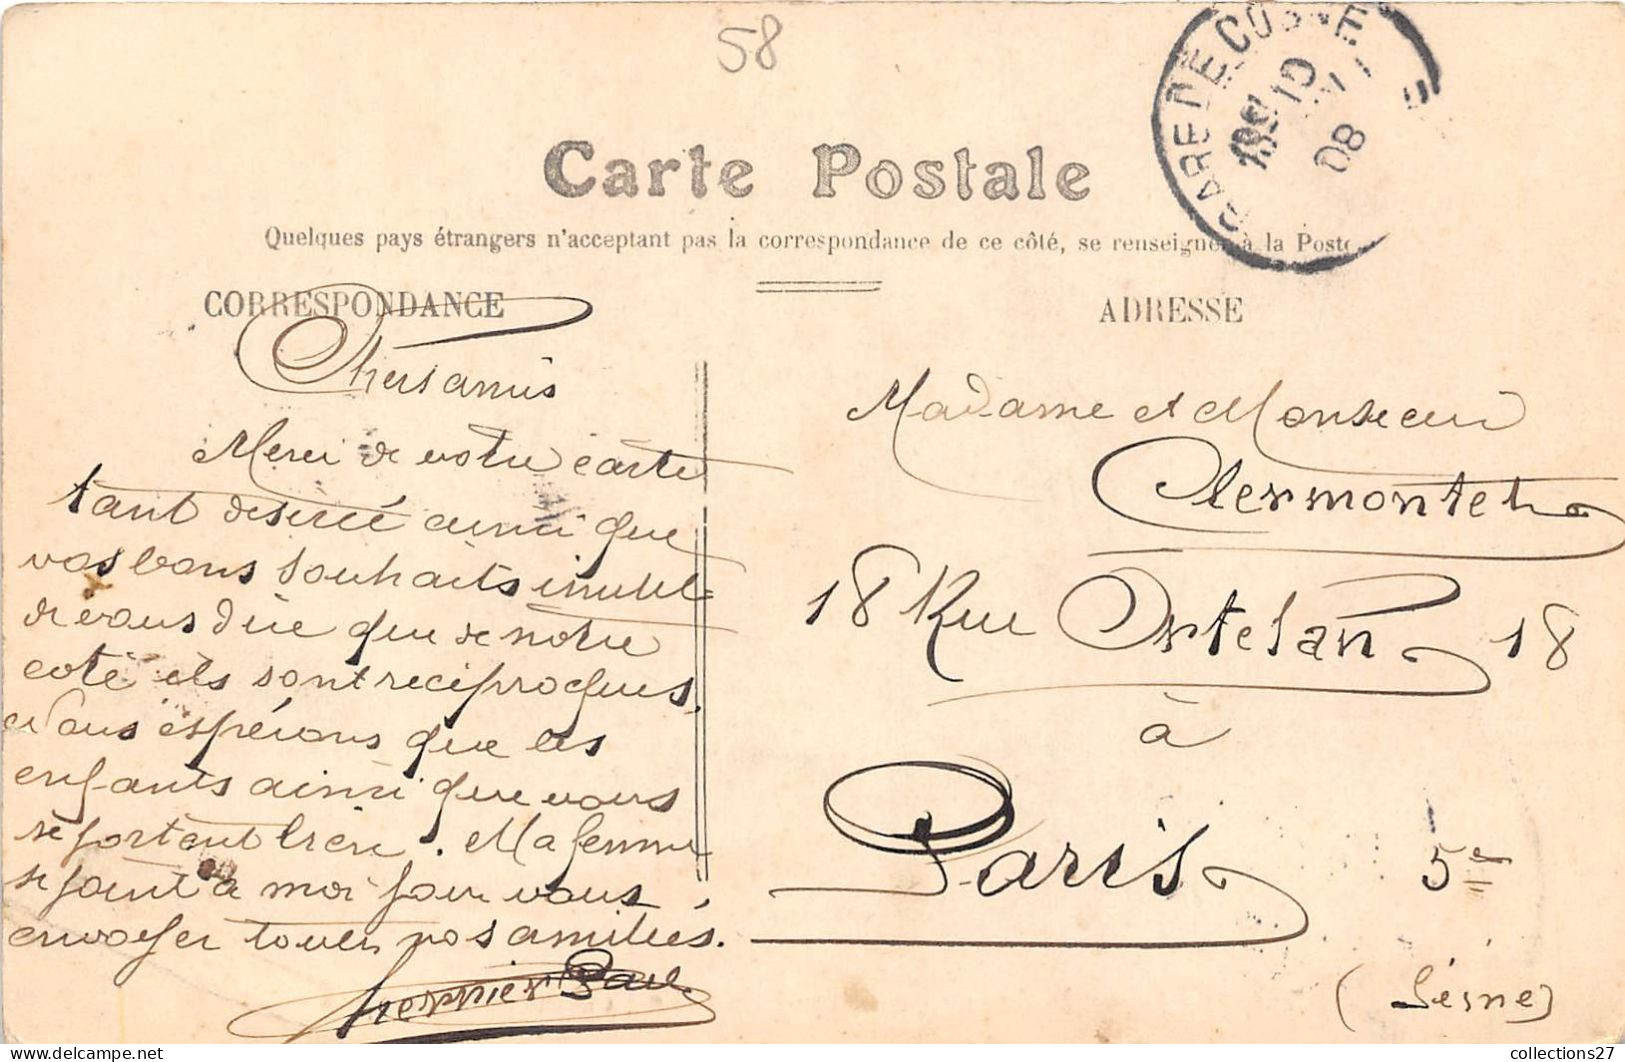 58
GARE DE COSNE
10
08
Carte Postale
Quelques pays étrangers n'acceptent pas la correspondance de ce côté, se renseigner à la Poste
CORRESPONDANCE
ADRESSE
Chers amis
Merci de votre carte
tant desireé ainsi que
vos bons souhaits inutile
de vous dire que de notre
coté ils sont reciproques,
Nous espérons que les
enfants ainsi que vous
se portent bien. Ma femme
se joint a moi pour vous
envoyer toutes nos amitiés.
Paul
Madame et Monsieur
Clermontet
18 Rue Ortolan 18
à
Paris 5e
(Seine)
collections27